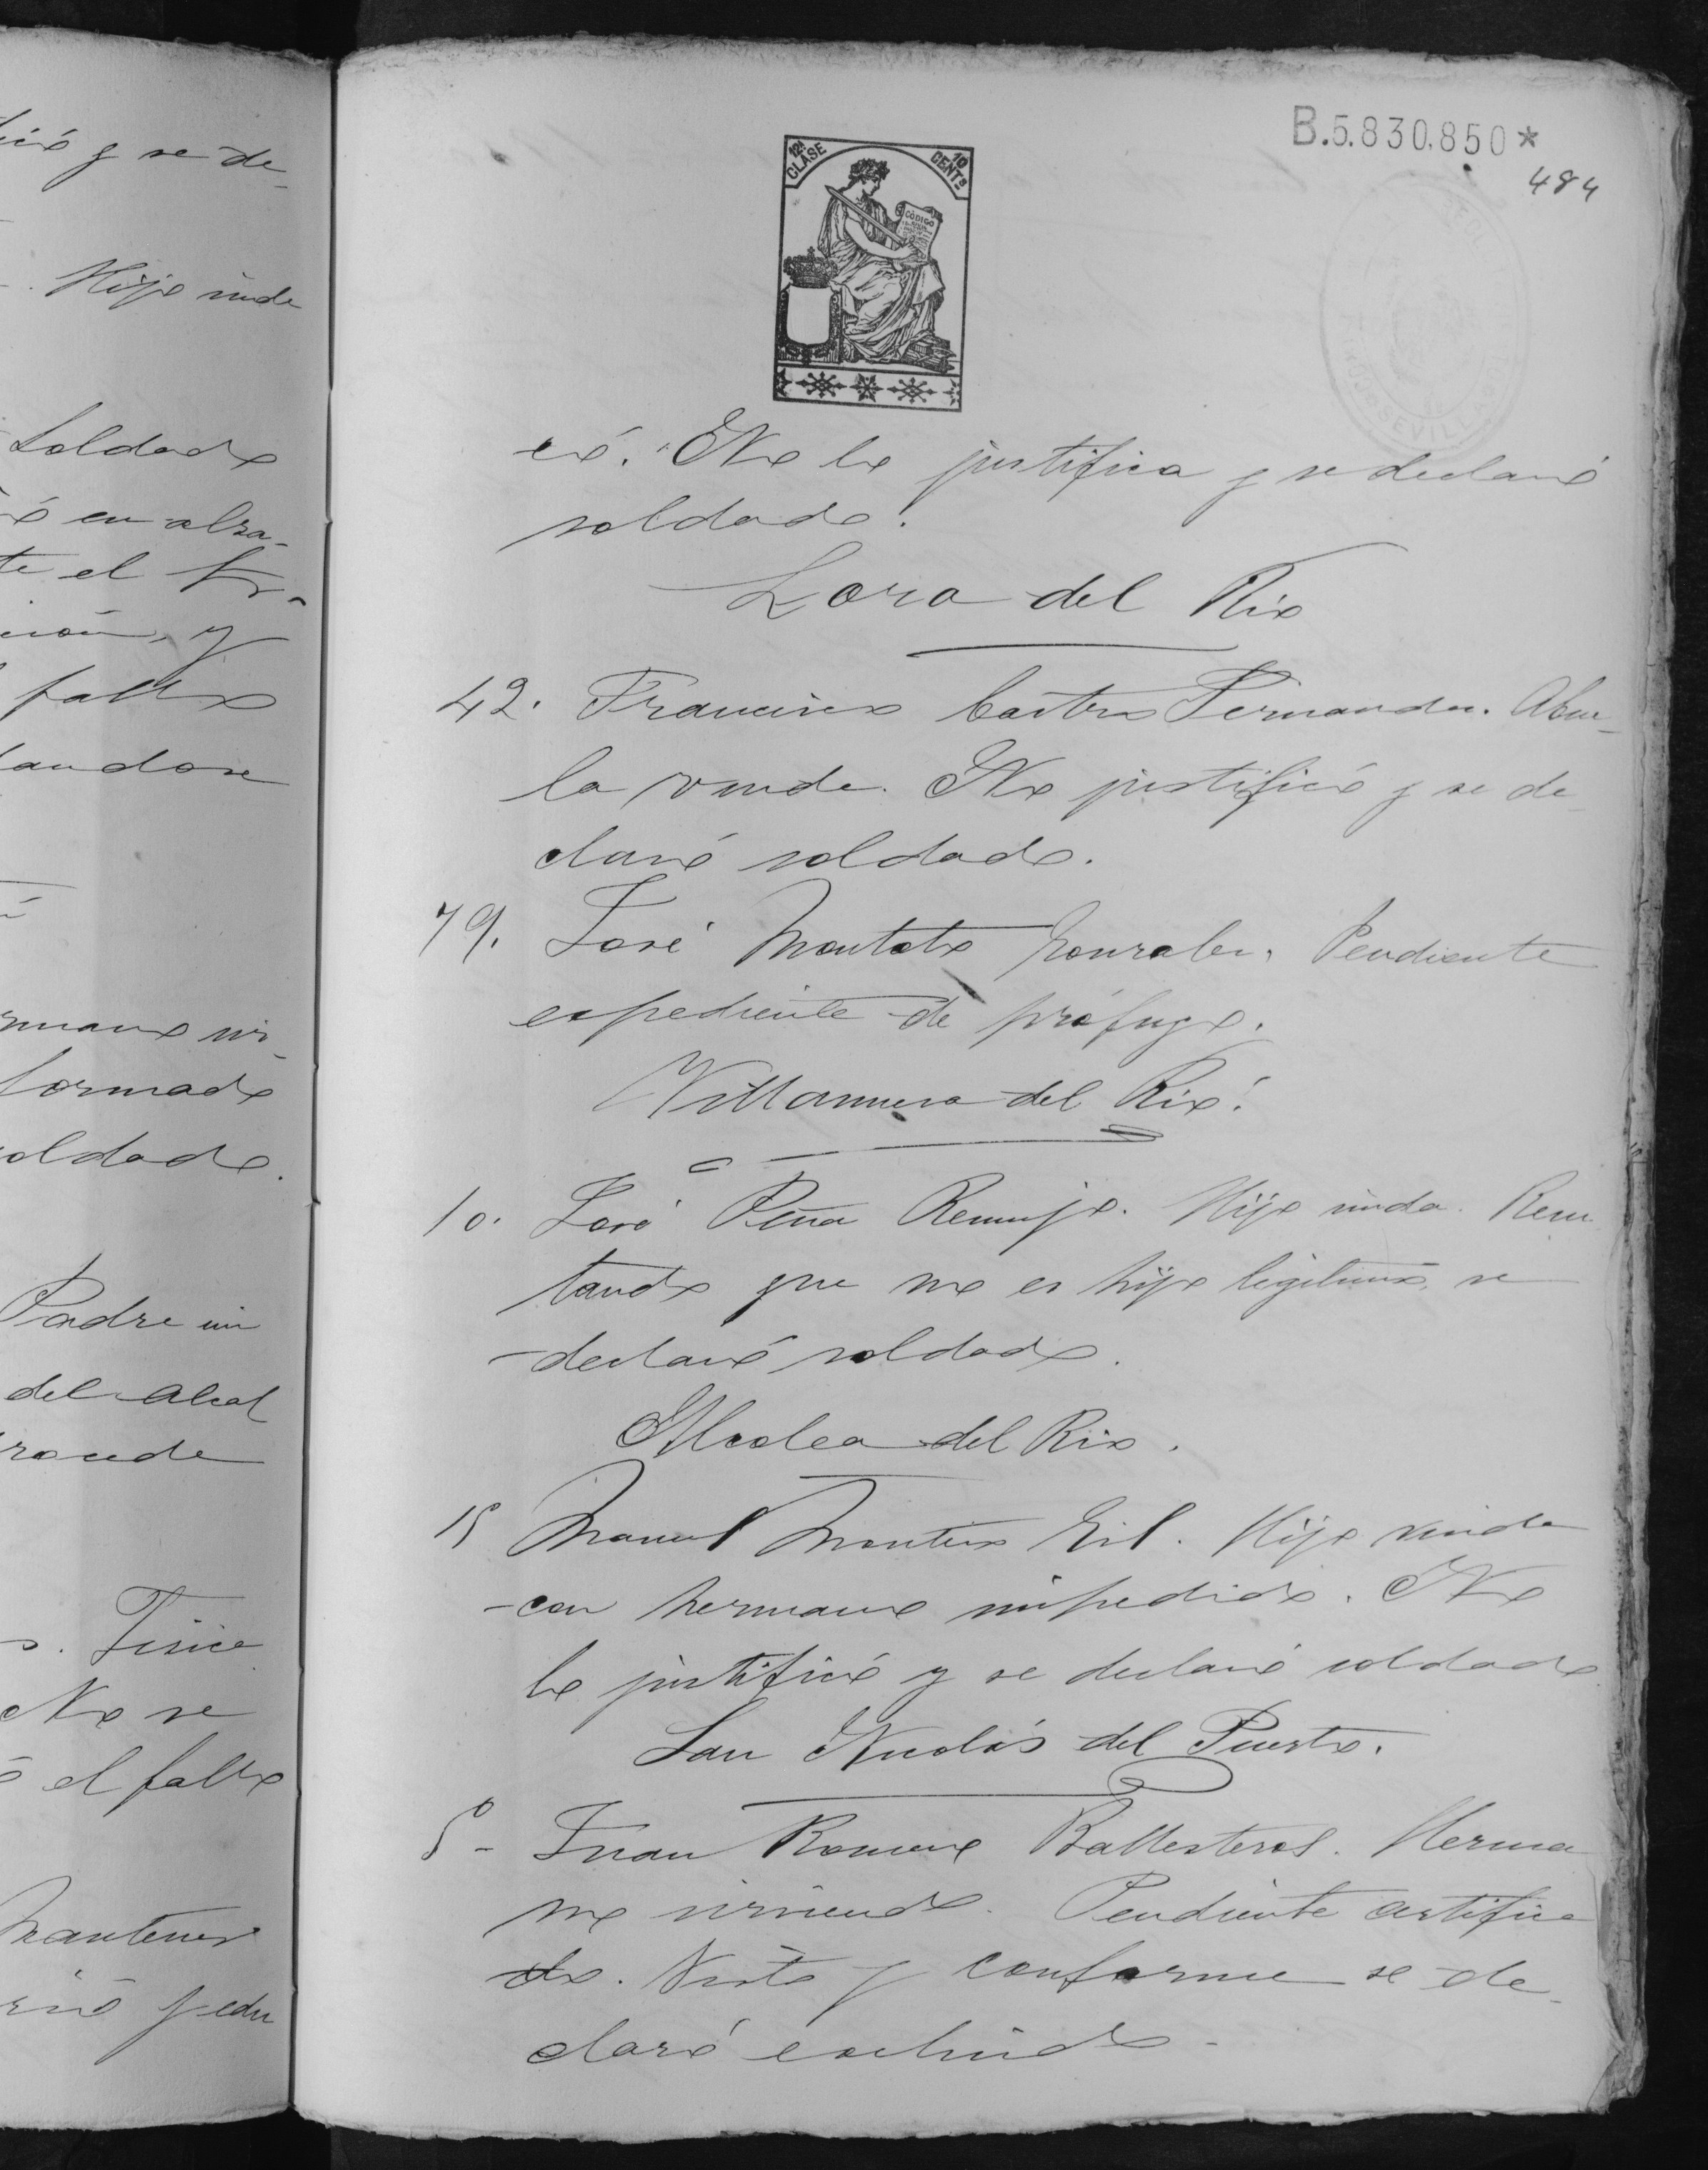 ció y se de-
Hijo viuda
Soldado
en alza-
te el
ción, y
fallo
dandose
formado
soldado.
Padre im
del Alcal
No se
el fallo
Mantener
B.5.830.850*
484
12ª CLASE
10 CENTS
CÓDIGO
SEVILLA
có. No lo justifica y se declaró
soldado.
Lora del Rio
42. Francisco Castro Fernandez. Abue-
la viuda. No justificó y se de-
claró soldado.
79. José Montoto Gonzalez. Pendiente
expediente de prófugo.
Villanueva del Rio.
10. José Peña Remujo. Hijo viuda. Resul
tando que no es hijo legitimo, se
declaró soldado.
Alcolea del Rio.
15 Manuel Montero Gil. Hijo viuda
con hermano impedido. No
lo justificó y se declaró soldado
San Nicolás del Puerto.
5- Juan Romero Ballesteros. Herma
no sirviendo. Pendiente certifica
do. Visto y conforme se de-
claró excluido-